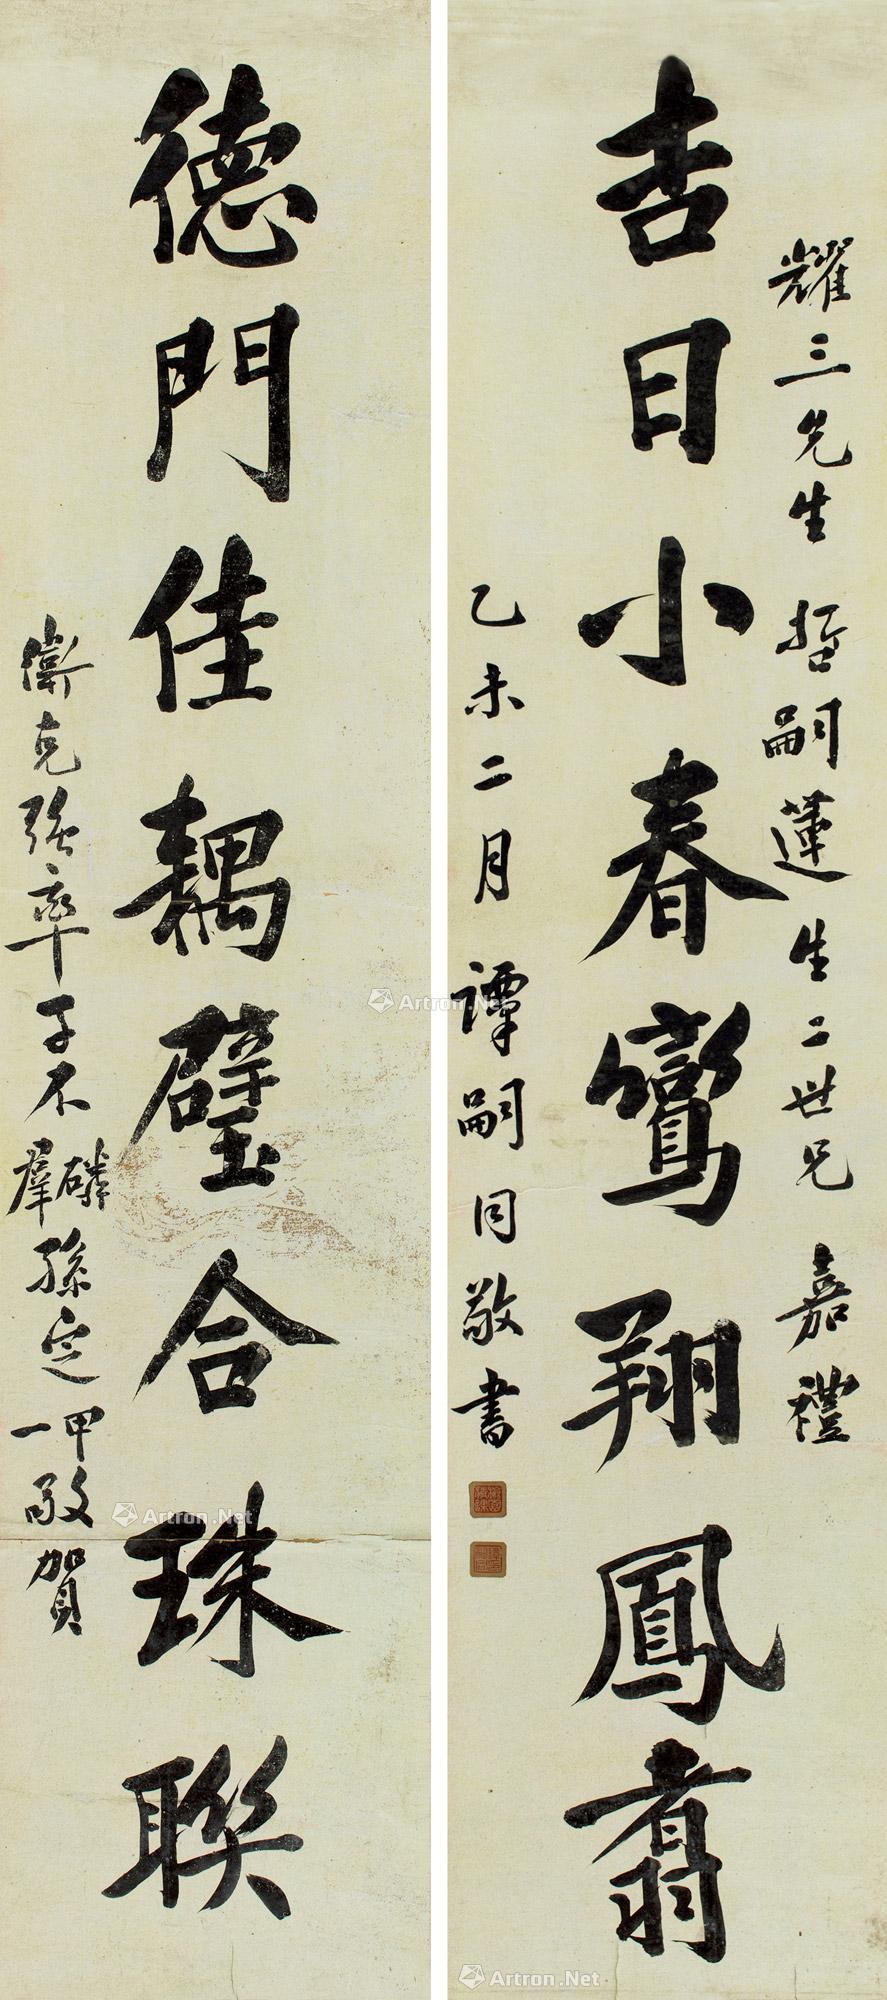 耀三先生哲嗣蓮生二世兄嘉禮
吉日小春鸞翔鳳翥
乙未二月譚嗣同敬書
德門佳耦璧合珠聯
衛克強率子不磷羣孫定一甲敬賀
Artron.Net
Artron.Net
Artron.Net
Artron.Net